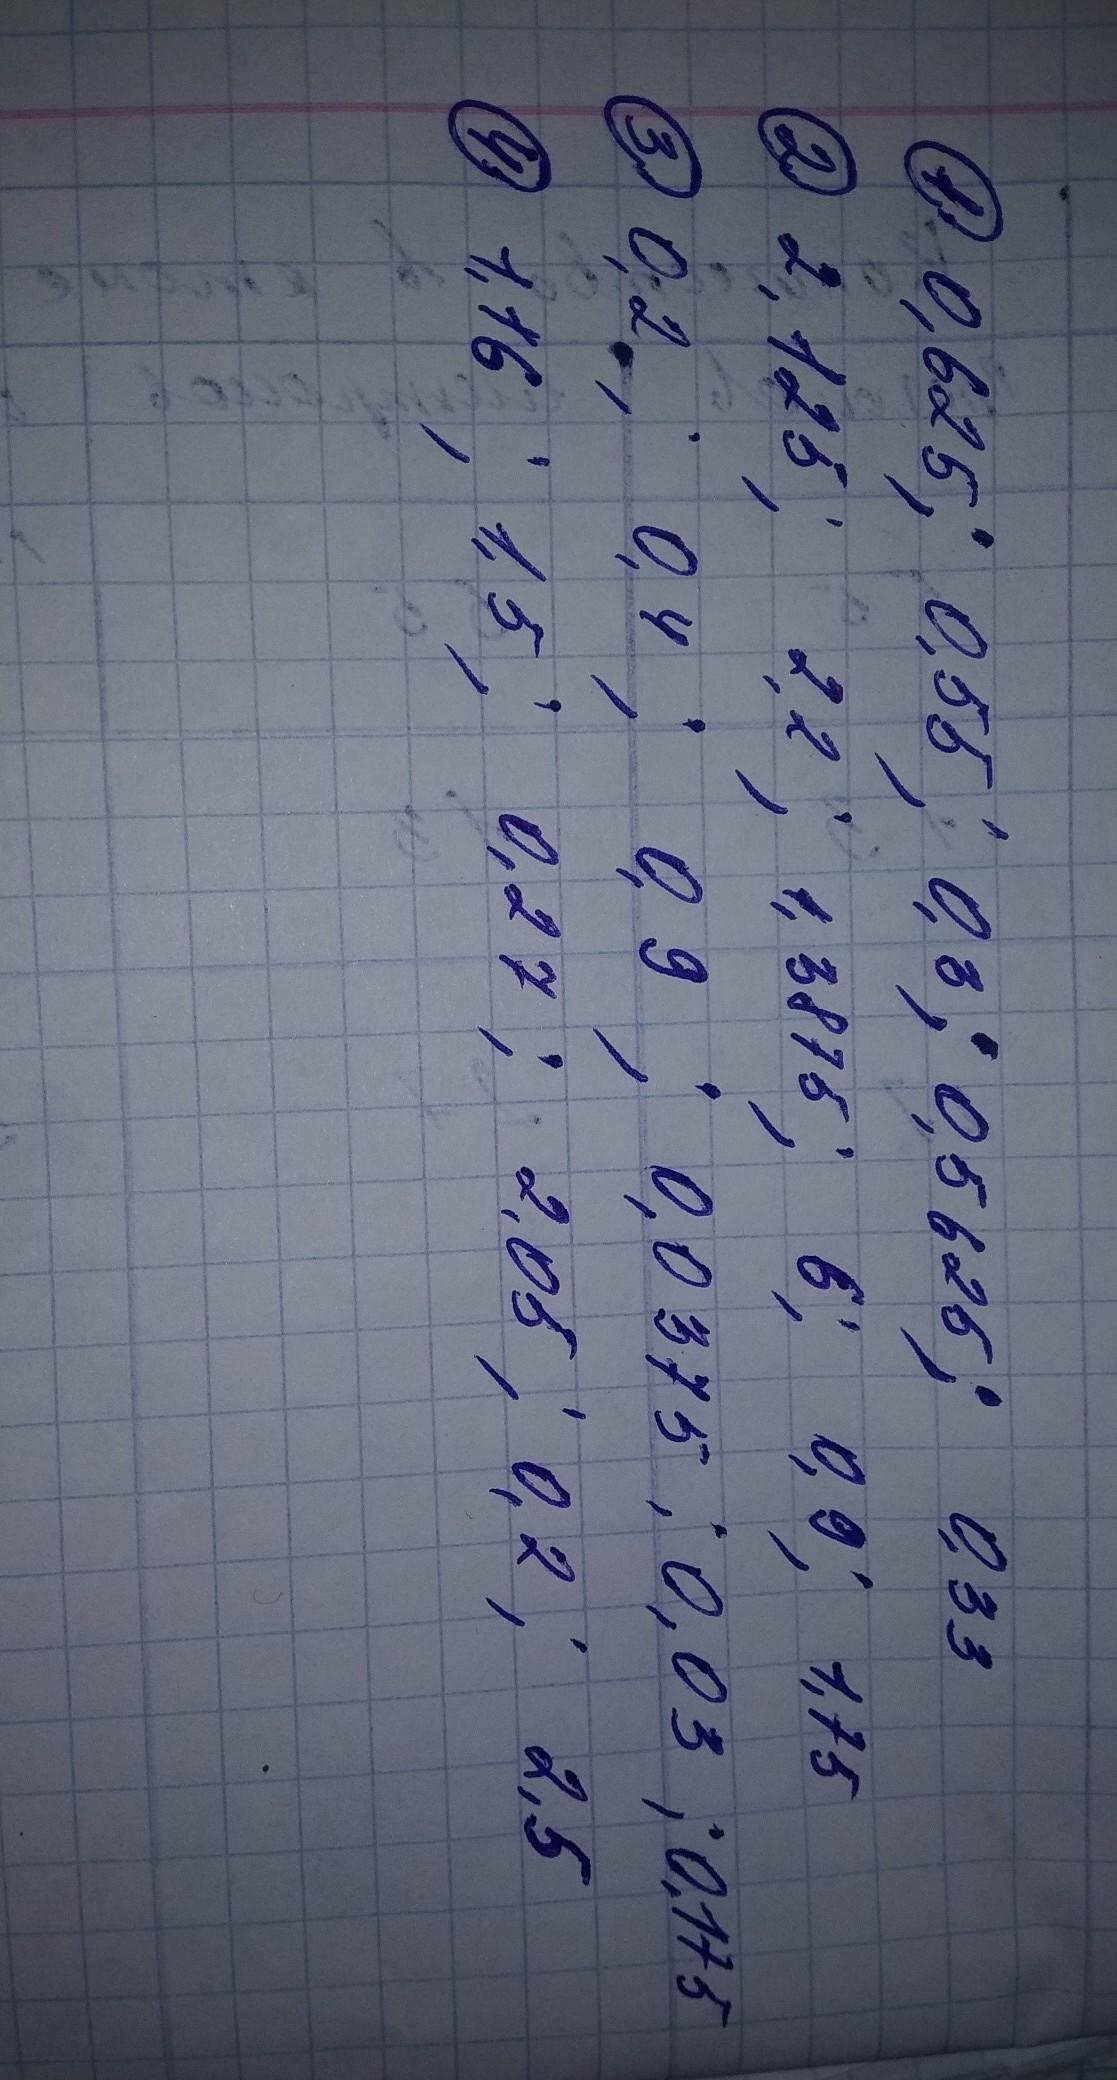 1. 0,625; 0,55; 0,3; 0,5625; 0,33
2) 2,125; 2,2; 1,3875; 6; 0,9; 1,75
3) 0,2; 0,4; 0,9; 0,0375; 0,03; 0,175
4. 1,16; 1,5; 0,27; 2,05; 0,2; 2,5